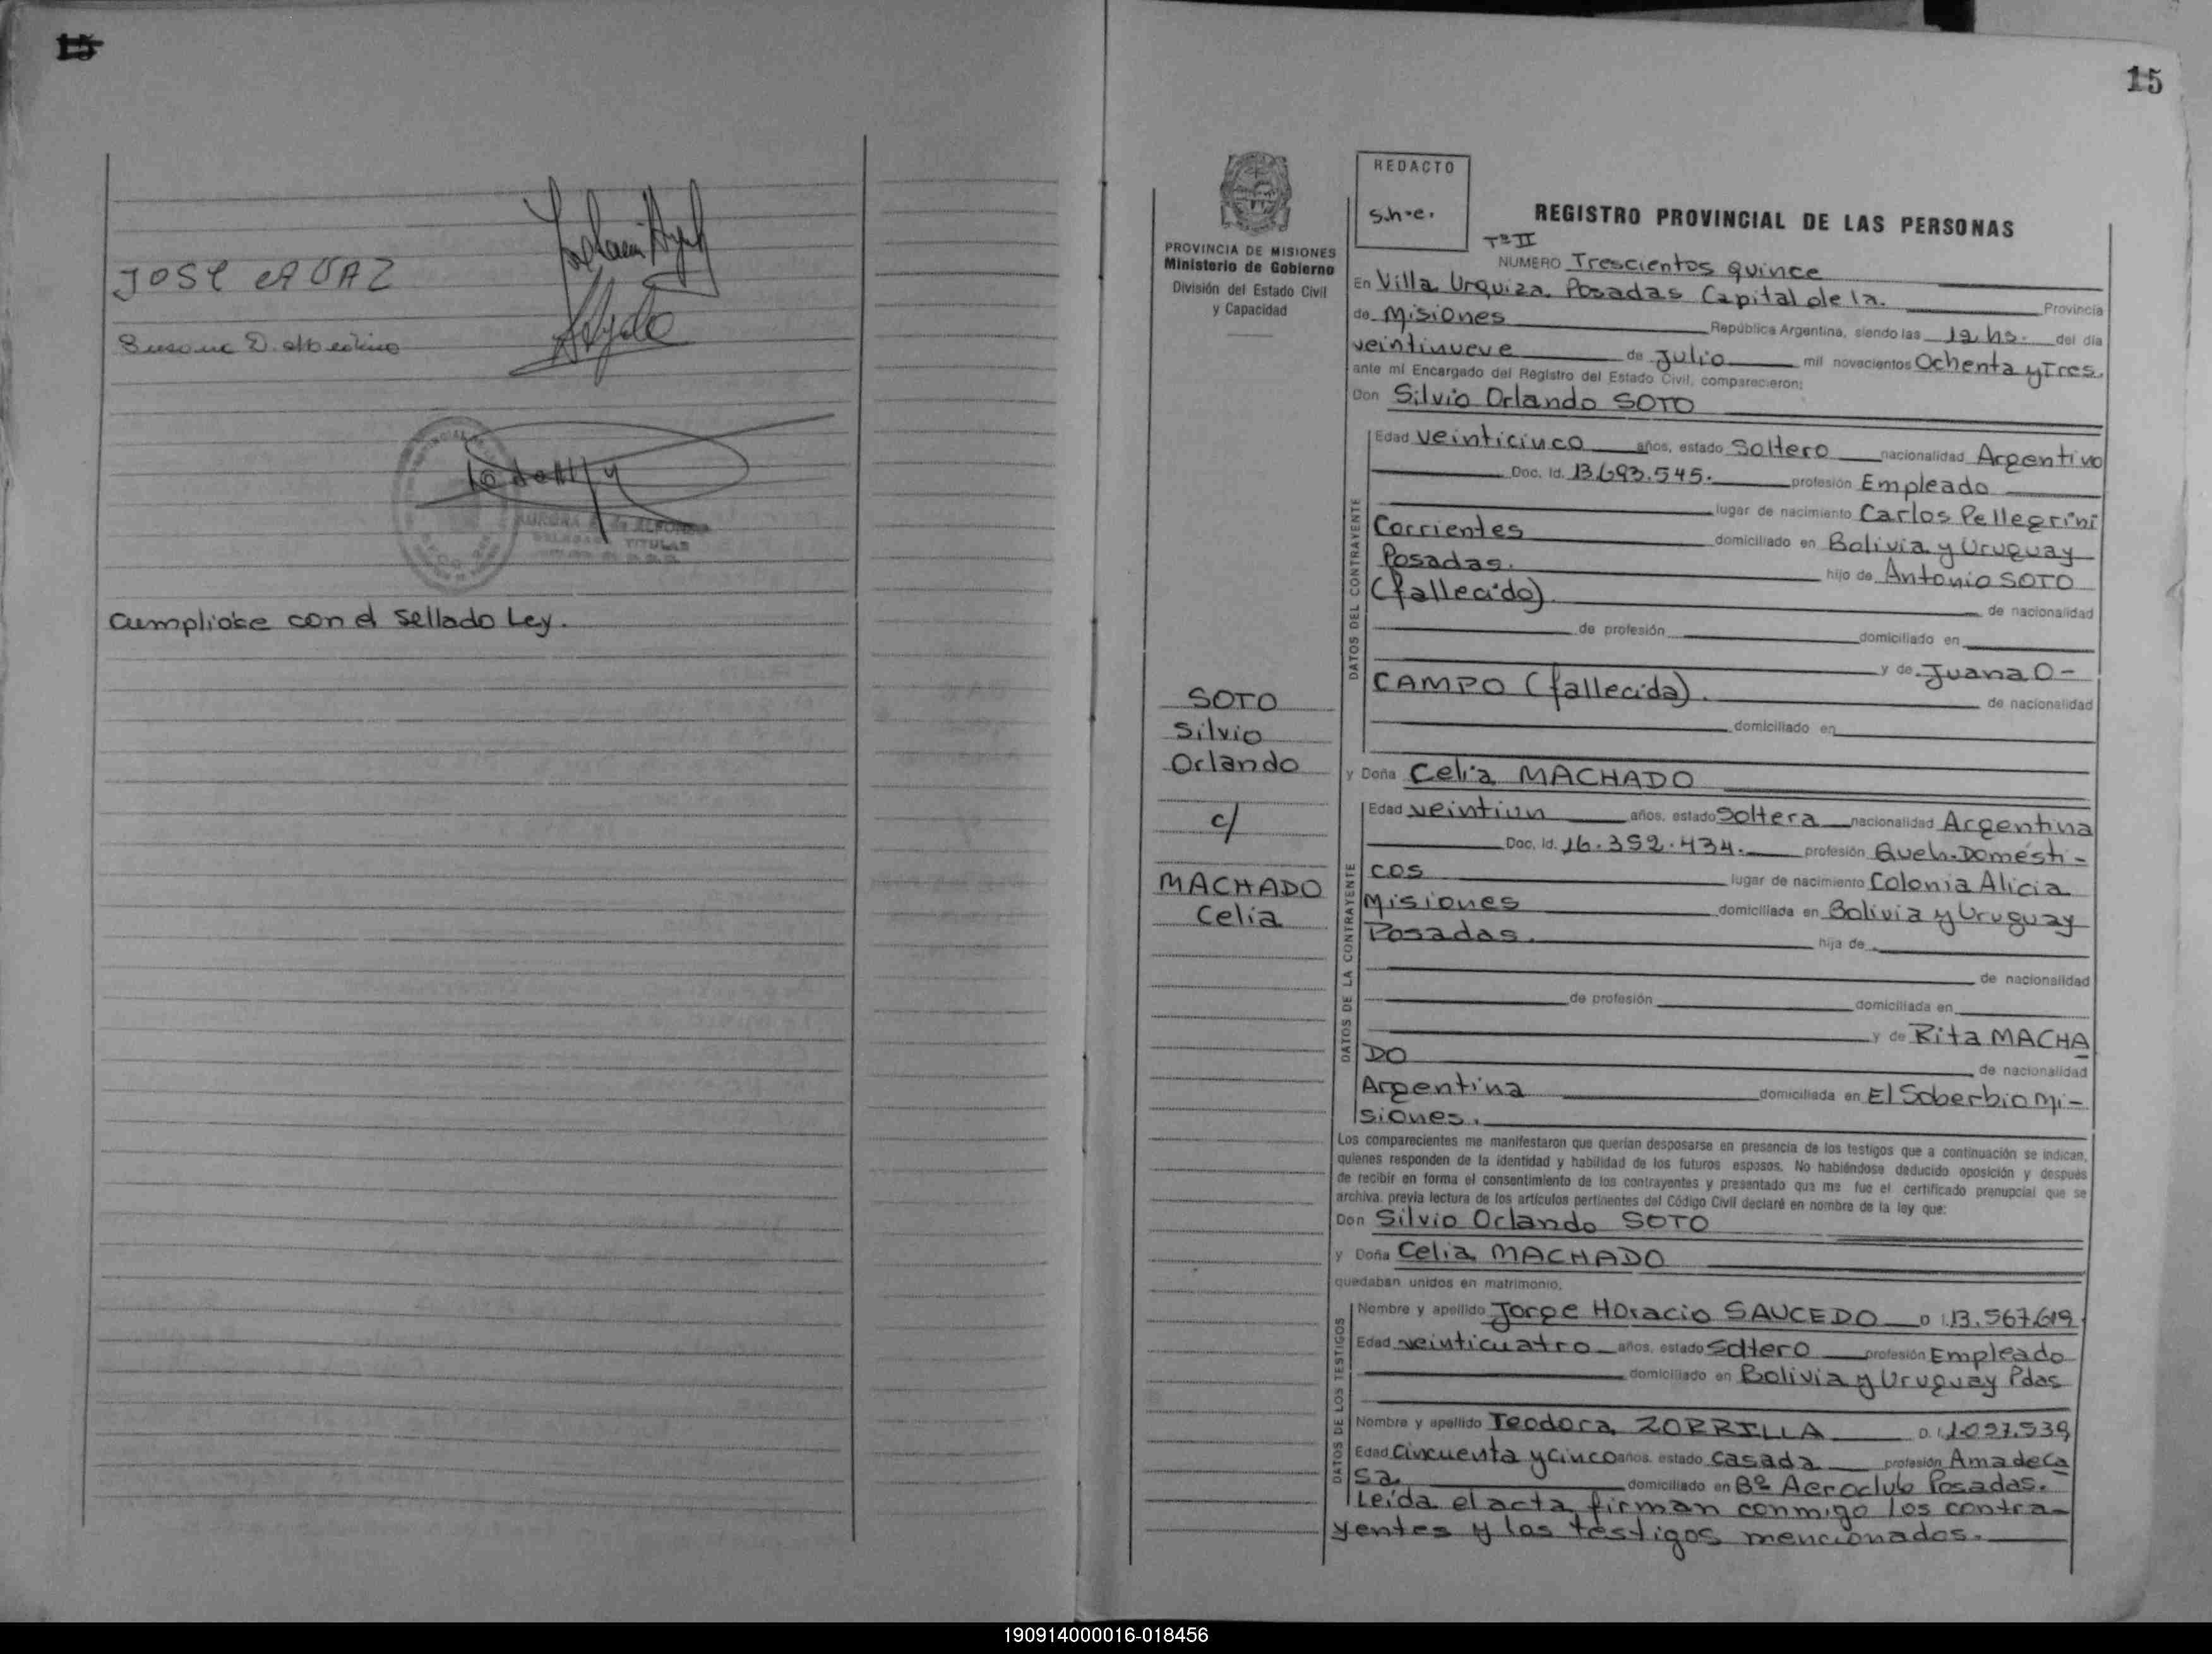 15
JOSE
Susana D.
Cumpliose con el Sellado Ley.
15
PROVINCIA DE MISIONES
Ministerio de Gobierno
División del Estado Civil
y Capacidad
REDACTO
S.h.e.
REGISTRO PROVINCIAL DE LAS PERSONAS
Tº II
NUMERO Trescientos quince
En Villa Urquiza Posadas Capital de la. Provincia
de Misiones República Argentina, siendo las 12 hs. del día
veintinueve de Julio mil novecientos Ochenta y Tres.
ante mí Encargado del Registro del Estado Civil, comparecieron:
Don Silvio Orlando SOTO
DATOS DEL CONTRAYENTE
Edad veinticinco años, estado Soltero nacionalidad Argentino
Doc. Id. 13.693.545. profesión Empleado
lugar de nacimiento Carlos Pellegrini
Corrientes domiciliado en Bolivia y Uruguay
Posadas. hijo de Antonio SOTO
(fallecido). de nacionalidad
de profesión domiciliado en
y de Juana O-
CAMPO (fallecida). de nacionalidad
domiciliado en
SOTO
Silvio
Orlando
c/
MACHADO
Celia
y Doña Celia MACHADO
DATOS DE LA CONTRAYENTE
Edad veintiun años, estado Soltera nacionalidad Argentina
Doc. Id. 16.352.434. profesión Queh. Domésti-
cos lugar de nacimiento Colonia Alicia
Misiones domiciliada en Bolivia y Uruguay
Posadas. hija de
de nacionalidad
de profesión domiciliada en
y de Rita MACHA
DO de nacionalidad
Argentina domiciliada en El Soberbio Mi-
siones.
Los comparecientes me manifestaron que querían desposarse en presencia de los testigos que a continuación se indican,
quienes responden de la identidad y habilidad de los futuros esposos. No habiéndose deducido oposición y después
de recibir en forma el consentimiento de los contrayentes y presentado que me fue el certificado prenupcial que se
archiva, previa lectura de los artículos pertinentes del Código Civil declaré en nombre de la ley que:
Don Silvio Orlando SOTO
y Doña Celia MACHADO
quedaban unidos en matrimonio.
DATOS DE LOS TESTIGOS
Nombre y apellido Jorge Horacio SAUCEDO D I. 13.567.619
Edad veinticuatro años, estado Soltero profesión Empleado
domiciliado en Bolivia y Uruguay Pdas
Nombre y apellido Teodora ZORRILLA D. I.
Edad Cincuenta y cinco años, estado Casada profesión Ama de Ca
sa. domiciliado en Bº Aeroclub Posadas.
Leída el acta firman conmigo los contra-
yentes y los testigos mencionados.
190914000016-018456